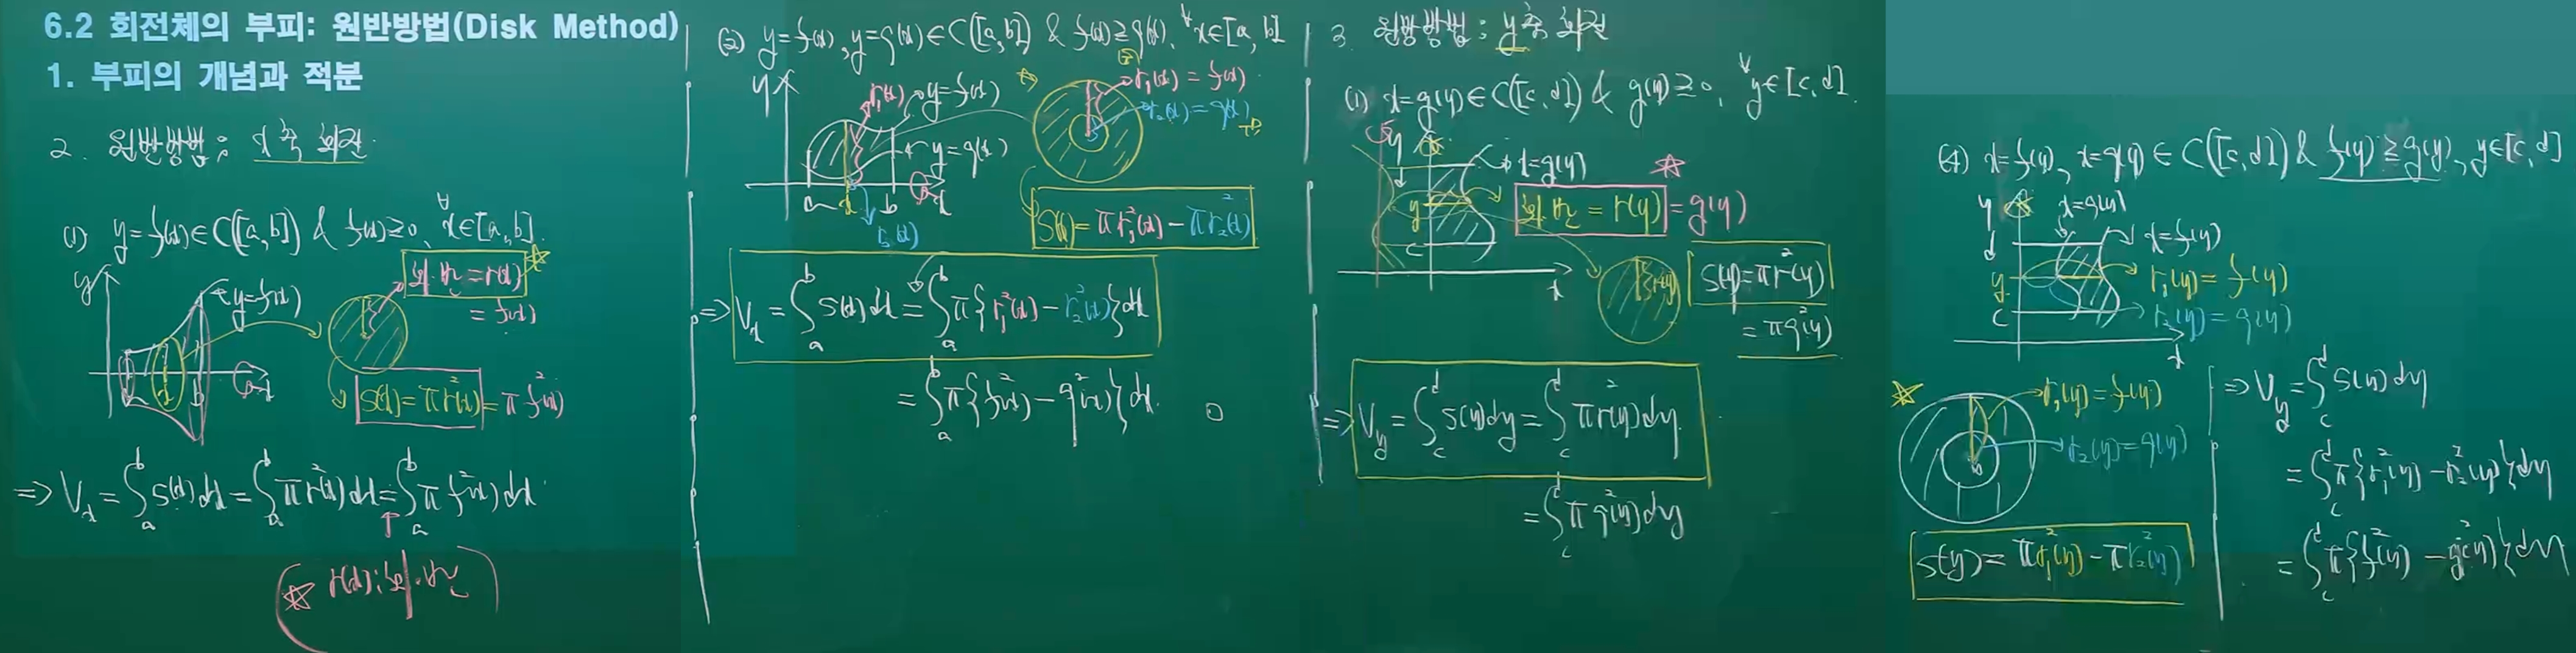 6.2 회전체의 부피: 원반방법(Disk Method)
1. 부피의 개념과 적분
2. 원반방법: x축 회전
(1) y=f(x)∈C([a,b]) & f(x)≥0, ∀x∈[a,b]
y
y=f(x)
회.반. = r(x)
= f(x)
x
b
x
S(x)=πr²(x)=πf²(x)
⇒ Vx = ∫ₐᵇ S(x)dx = ∫ₐᵇ πr²(x)dx = ∫ₐᵇ πf²(x)dx
r(x): 회.반.
(2) y=f(x), y=g(x)∈C([a,b]) & f(x)≥g(x), ∀x∈[a,b]
y
r₁(x)
y=f(x)
y=g(x)
a
x
b
x
r₂(x)
r₁(x)=f(x)
r₂(x)=g(x)
S(x)=πr₁²(x)-πr₂²(x)
⇒ Vx = ∫ₐᵇ S(x)dx = ∫ₐᵇ π{r₁²(x)-r₂²(x)}dx
= ∫ₐᵇ π{f²(x)-g²(x)}dx.
3. 원반방법: y축 회전
(1) x=g(y)∈C([c,d]) & g(y)≥0, ∀y∈[c,d].
y
d
x=g(y)
y
c
x
회.반. = r(y) = g(y)
r(y)
S(y)=πr²(y)
=πg²(y)
⇒ Vy = ∫_c^d S(y)dy = ∫_c^d πr²(y)dy.
= ∫_c^d πg²(y)dy
(2) x=f(y), x=g(y)∈C([c,d]) & f(y)≥g(y), y∈[c,d]
y
x=g(y)
d
x=f(y)
y
r₁(y)=f(y)
c
r₂(y)=g(y)
x
r₁(y)=f(y)
r₂(y)=g(y)
S(y)=πr₁²(y)-πr₂²(y)
⇒ Vy = ∫_c^d S(y)dy
= ∫_c^d π{r₁²(y)-r₂²(y)}dy
= ∫_c^d π{f²(y)-g²(y)}dy